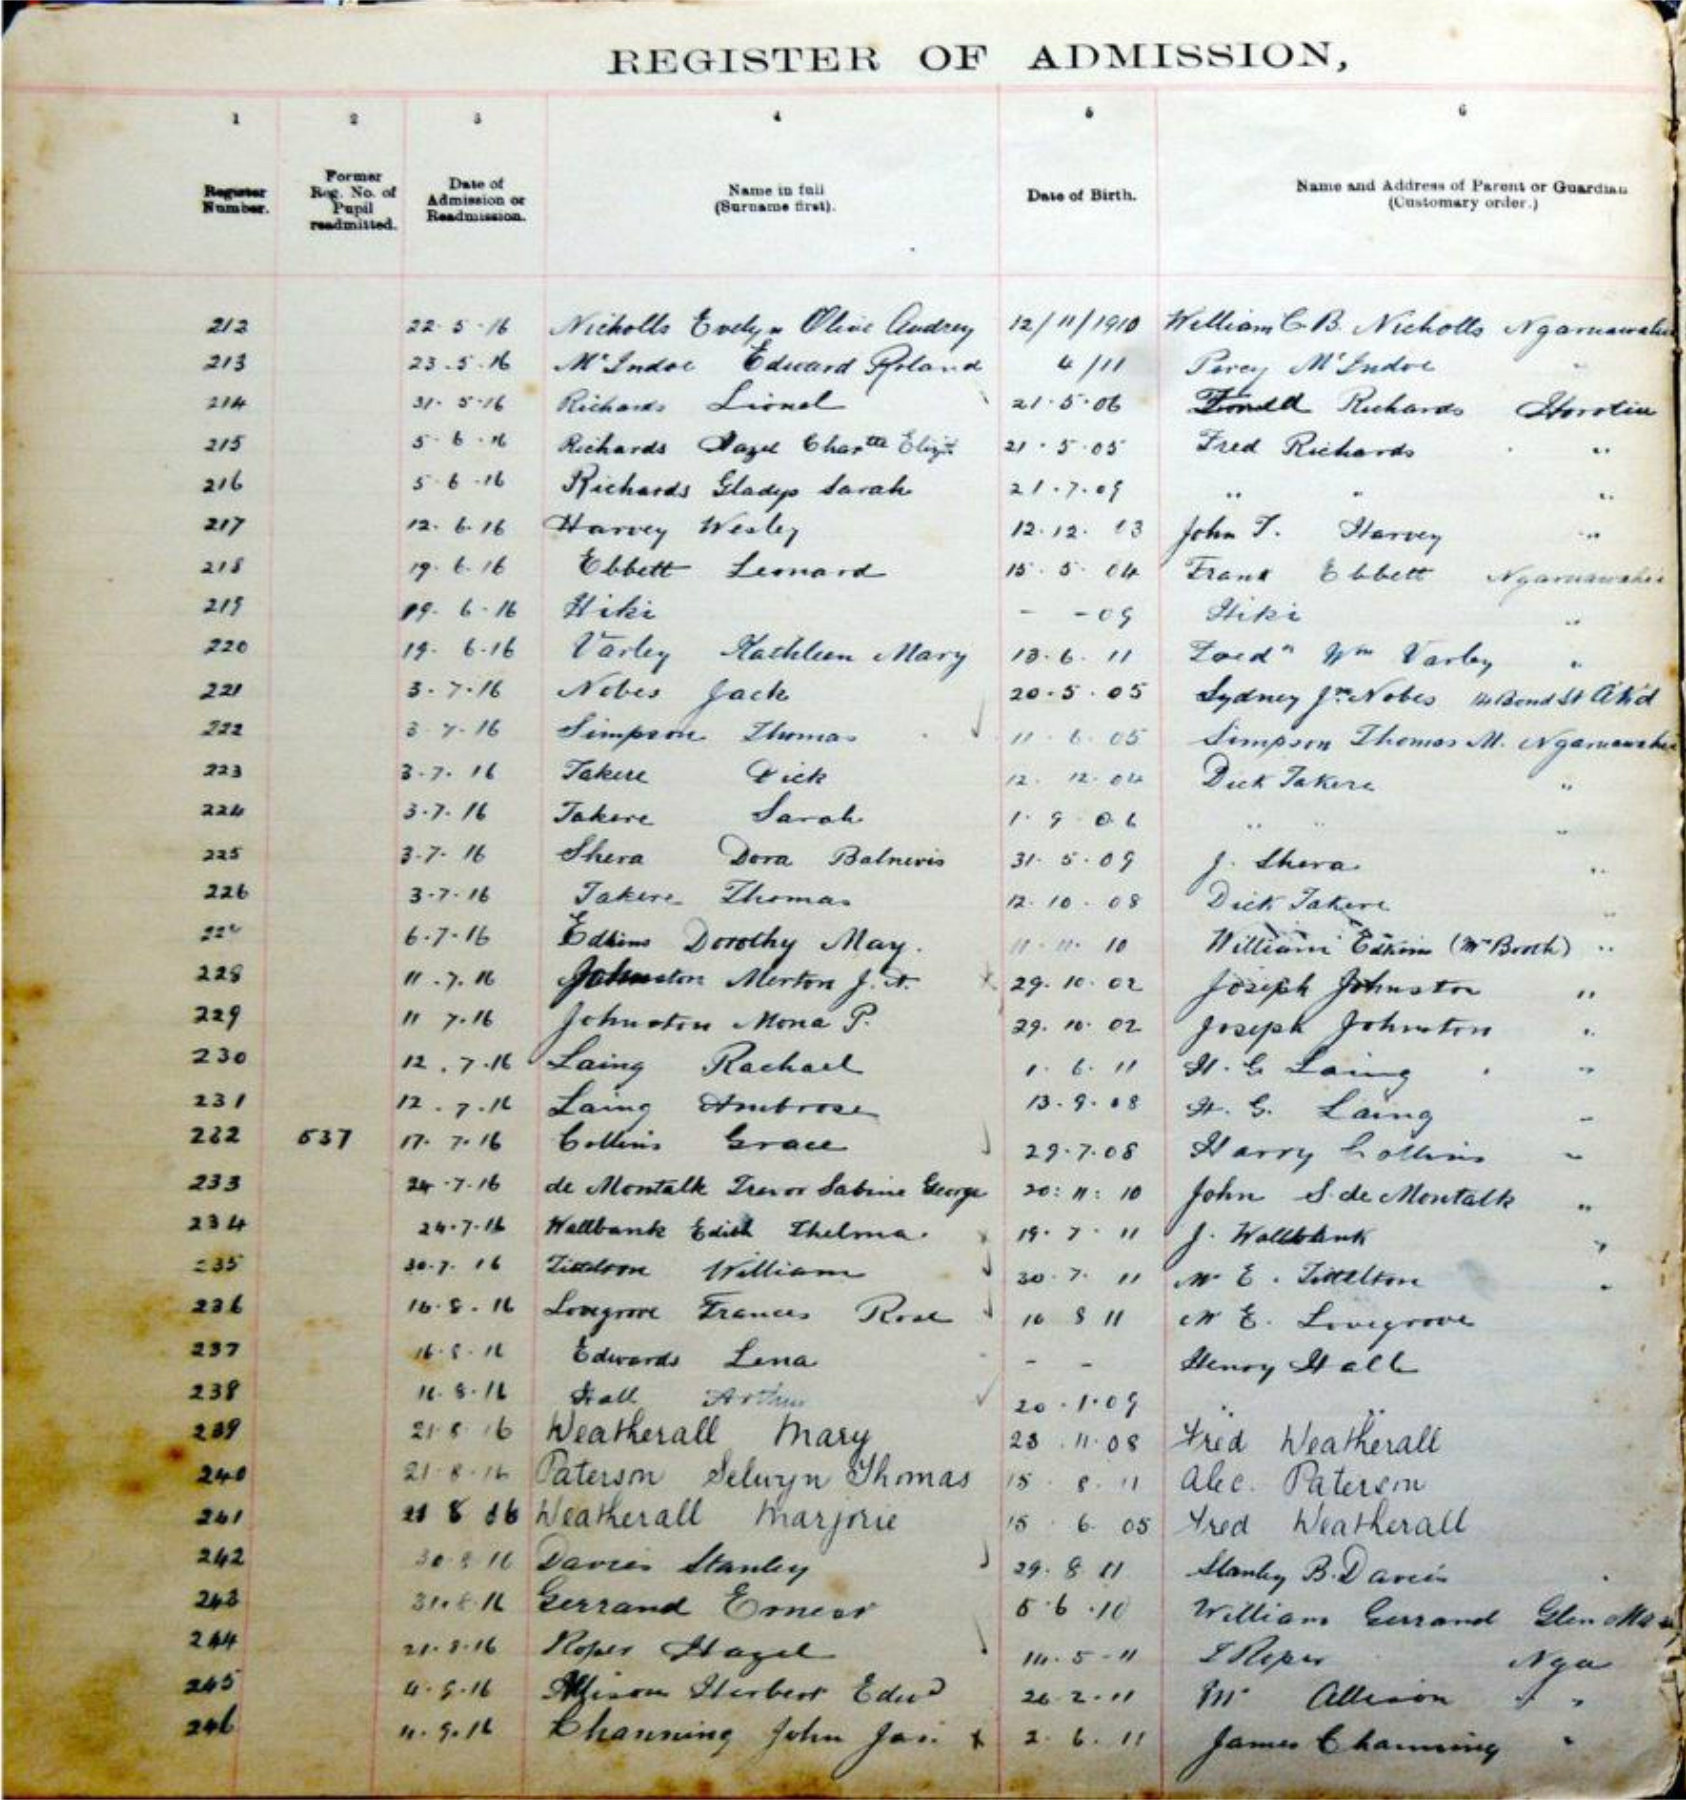 REGISTER OF ADMISSION,
1 2 3 4 5 6
Register Number. Former Reg. No. of Pupil readmitted. Date of Admission or Readmission. Name in full (Surname first). Date of Birth. Name and Address of Parent or Guardian (Customary order.)
212 22.5.16 Nicholls Evelyn Olive Audrey 12/11/1910 William C B. Nicholls Ngaruawahia
213 23.5.16 McIndoe Edward Roland 4/11 Percy McIndoe "
214 31.5.16 Richards Lionel 21.5.06 Richards Horotiu
215 5.6.16 Richards Hazel Chartte Elizt 21.5.05 Fred Richards "
216 5.6.16 Richards Gladys Sarah 21.7.09 " " "
217 12.6.16 Harvey Wesley 12.12.03 John T. Harvey "
218 19.6.16 Ebbett Leonard 15.5.04 Frank Ebbett Ngaruawahia
219 19.6.16 Hiki - -09 Hiki "
220 19.6.16 Varley Kathleen Mary 13.6.11 Wm Varley "
221 3.7.16 Nobes Jack 20.5.05 Sydney Jn Nobes 14 Bond St Ak'd
222 3.7.16 Simpson Thomas 11.6.05 Simpson Thomas M. Ngaruawahia
223 3.7.16 Takere Dick 12.12.04 Dick Takere "
224 3.7.16 Takere Sarah 1.9.06 " " "
225 3.7.16 Shera Dora Balnevis 31.5.09 J. Shera "
226 3.7.16 Takere Thomas 12.10.08 Dick Takere "
6.7.16 Edkins Dorothy May. 11.11.10 William Edkins (Mrs Booth) "
228 11.7.16 Johnston Merton J. A. x 29.10.02 Joseph Johnston "
229 11 7.16 Johnston Mona P. 29.10.02 Joseph Johnston "
230 12.7.16 Laing Rachael 1.6.11 H. G Laing "
231 12.7.16 Laing Ambrose 13.9.08 H. G. Laing "
232 537 17.7.16 Collins Grace 29.7.08 Harry Collins "
233 24.7.16 de Montalk Trevor Sabine George 20:11:10 John S. de Montalk "
234 24.7.16 Wallbank Edith Thelma. x 19.7.11 J. Wallbank "
235 30.7.16 Tittelton William 30.7.11 W. E. Tittelton "
236 16.8.16 Lovegrove Frances Rose 10 8 11 W E. Lovegrove
237 16.8.16 Edwards Lena - - Henry Hall
238 16.8.16 Hall Arthur ✓ 20.1.09 " "
239 21.8.16 Weatherall Mary 23.11.08 Fred Weatherall
240 21.8.16 Paterson Selwyn Thomas 15.8.11 Alec. Paterson
241 21 8 16 Weatherall Marjorie 15.6.05 Fred Weatherall
242 30.8.16 Davies Stanley 29.8.11 Stanley B. Davies
243 31.8.16 Gerrand Ernest 5.6.10 William Gerrand Glen
244 21.8.16 Roper Hazel 14.5.11 Roper Nga
245 4.9.16 Allison Herbert Edwd 26.2.11 Mr Allison "
246 4.9.16 Channing John Jas. x 2.6.11 James Channing "